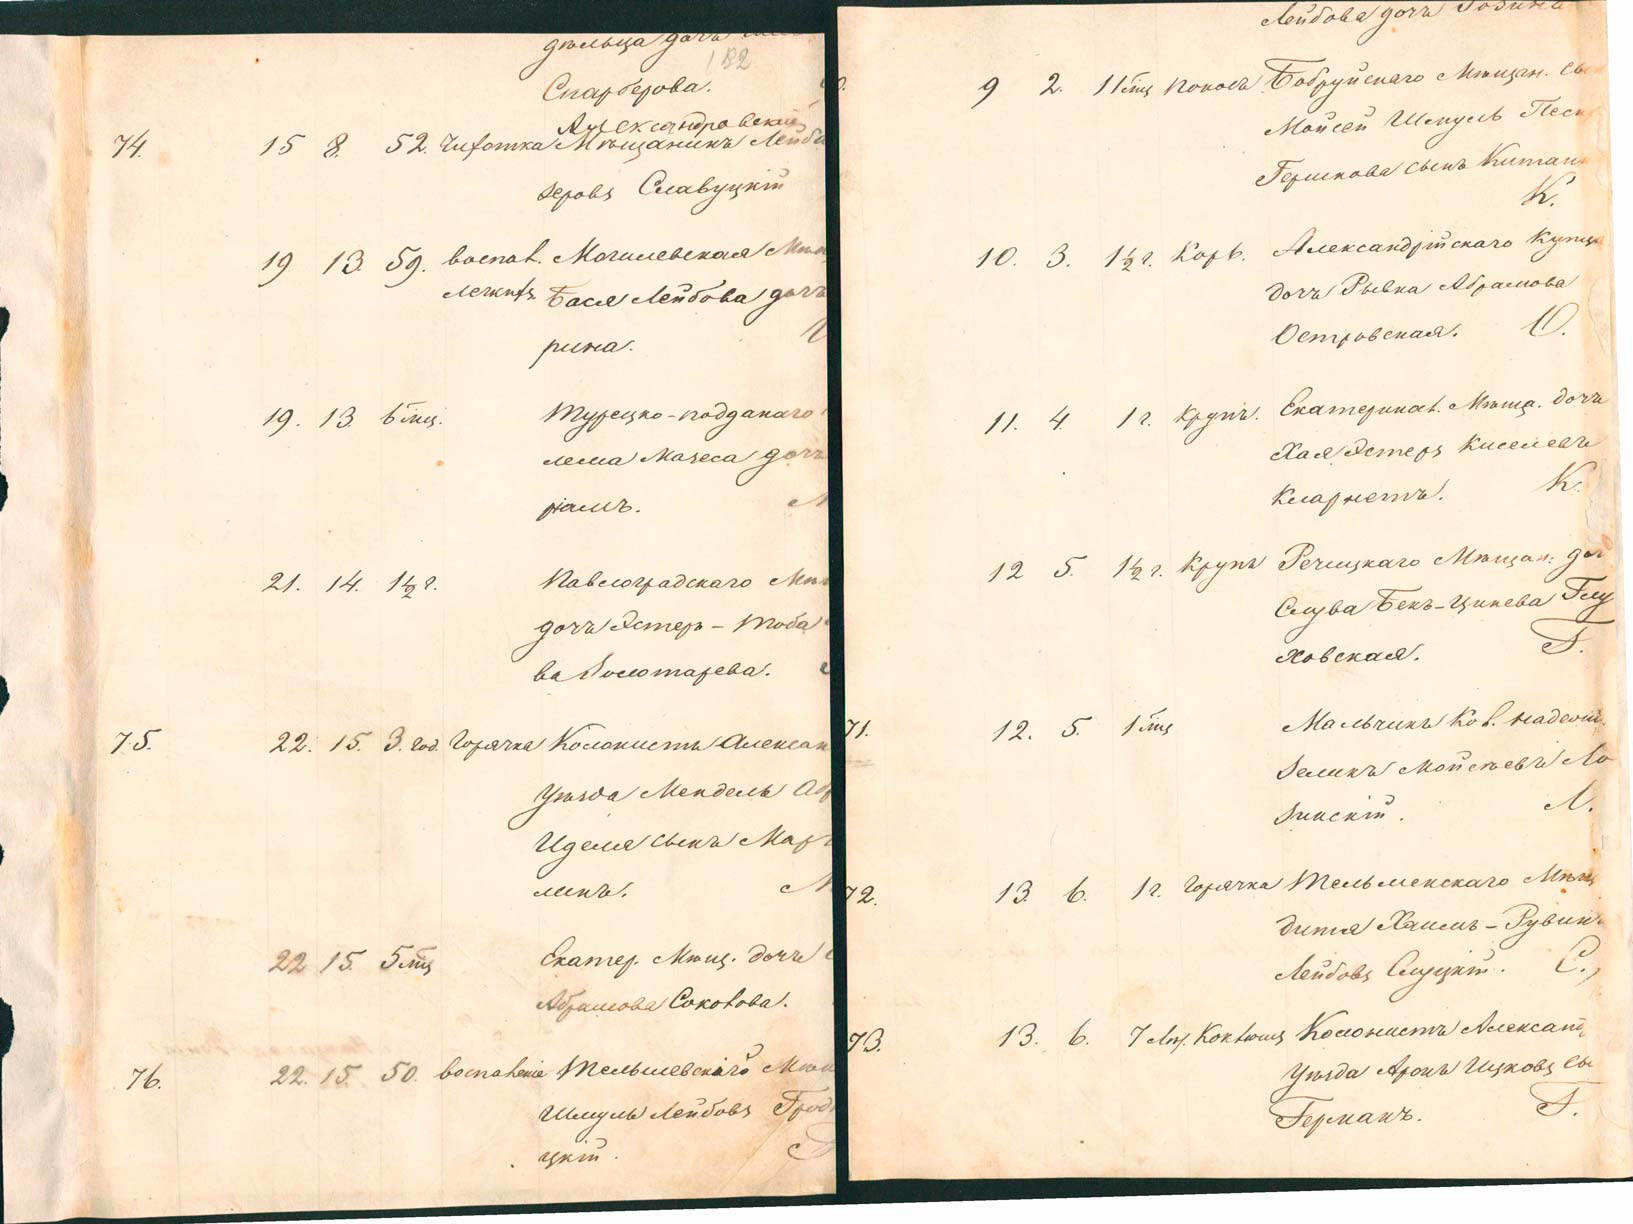 дѣльца дочь
182
Спарберова.
Александровскій
74. 15 8. 52. Чихотка Мѣщанинъ Лейба
Зеровъ Славуцкій
19 13. 59. воспал. Могилевская Мѣщ
легкихъ Бася Лейбова дочь
рина.
19. 13. 6 мѣц. Турецко-подданаго
лема Мазеса дочь
ріамъ.
21. 14. 1½ г. Павлоградскаго Мѣщ
дочь Эстеръ-Тоба
ва Золотарева.
75. 22. 15. 3. год. Горячка Колонистъ Алексан
Уѣзда Мендель Аб
Иделя сынъ Мар
линъ.
22 15. 5 мѣц Екатер. Мѣщ. дочь
Абрамова Соколова.
76. 22. 15. 50. воспаленіе Тельшевскій Мѣщ
Шмуль Лейбовъ Грод
цкій.
Лейбова дочь
9 2. 11 мѣц Поносъ Бобруйскаго Мѣщан. сы
Мойсей Шмуль Песи
Гершкова сынъ Китаи
К.
10. 3. 1½ г. Корь. Александрійскаго Купца
дочь Рывка Абрамова
Островская. О.
11. 4. 1 г. Крупъ. Екатеринос. Мѣща. дочь
Хая Эстеръ Киселевъ
Кларнетъ. К.
12 5. 1½ г. Крупъ Речицкаго Мѣщан. доч
Слува Бень-Цинева Глу
ховская. Г.
71. 12. 5. 1 мѣц Мальчикъ Ков.
Зеликъ Мойсеевъ Ло
зинскій. Л.
72. 13. 6. 1 г. Горячка Тельменскаго Мѣщ
дитя Хаимъ-Рувинъ
Лейбовъ Слуцкій. С.
73. 13. 6. 7 лѣт. Коклюшъ Колонистъ Александ
Уѣзда Аронъ Ицковъ сы
Германъ. Г.